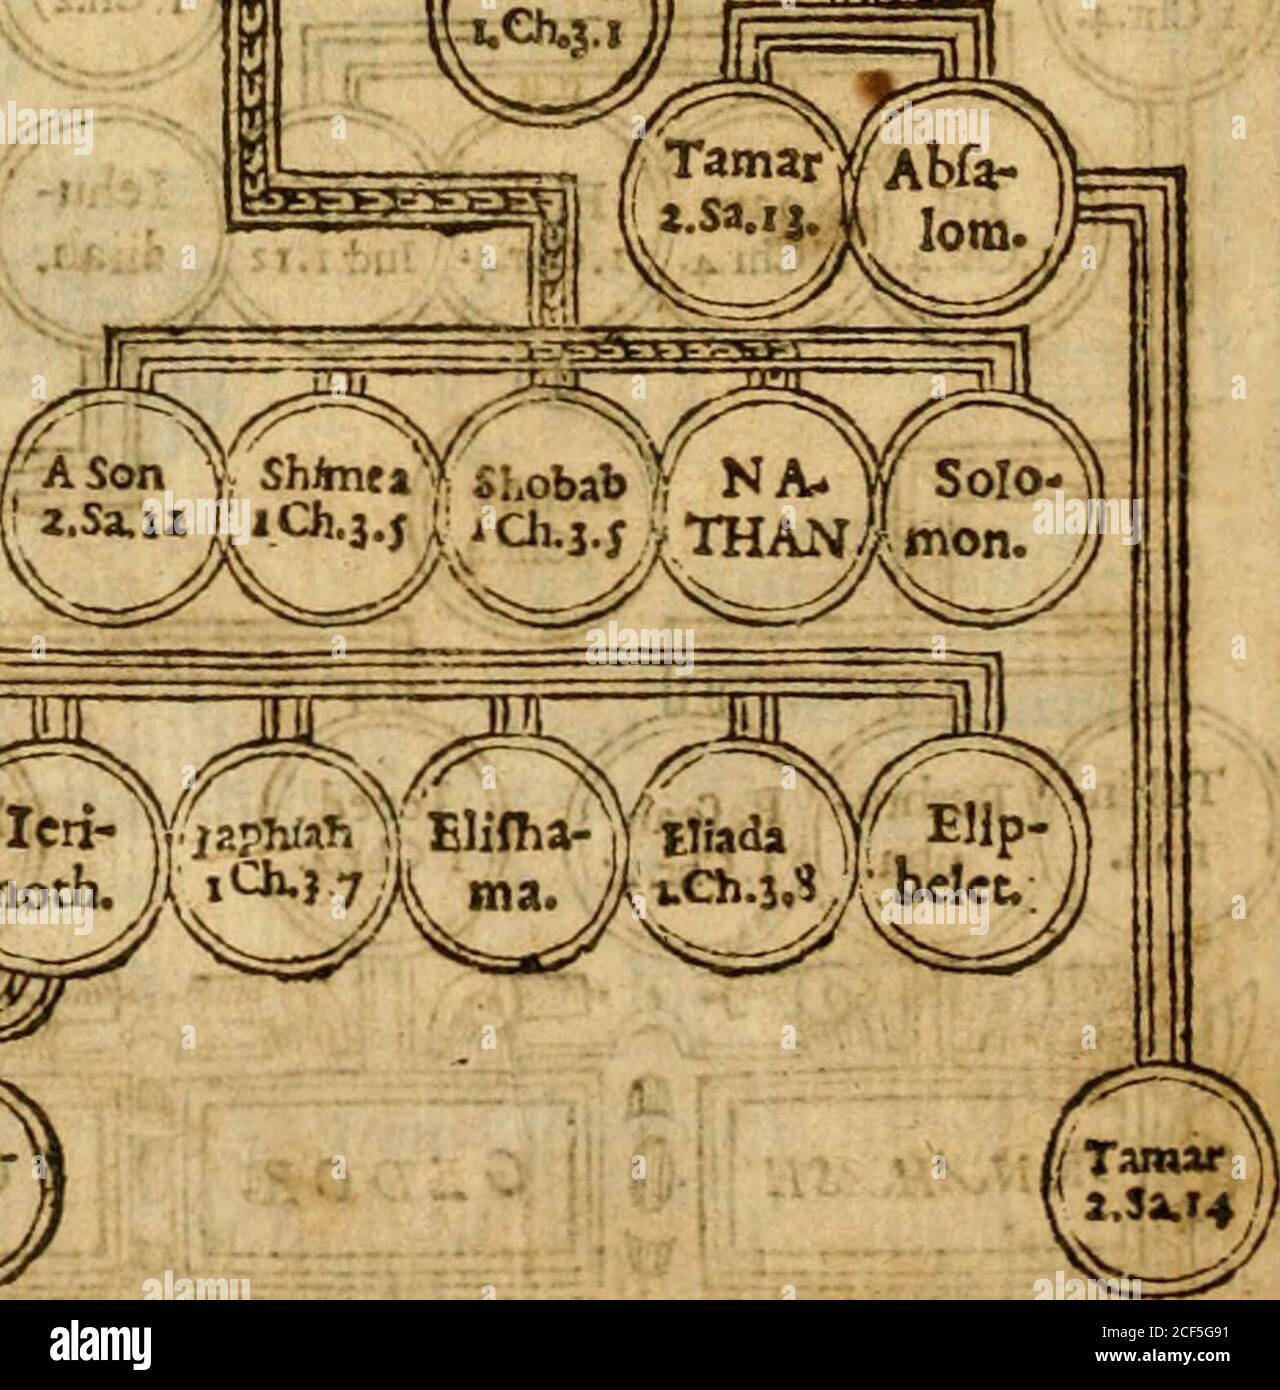 1. Ch.3.1
Tamar
2.Sa.13.
Abſa-
lom.
A Son
2.Sa.11
Shimea
1 Ch.3.5
Shobab
1 Ch.3.5
NA-
THAN
Solo-
mon.
Ieri-
moth.
Iaphiah
1 Ch.3.7
Eliſha-
ma.
Eliada
1.Ch.3.8
Elip-
helet.
Tamar
2.Sa.14
alamy
Image ID: 2CF5G91
www.alamy.com